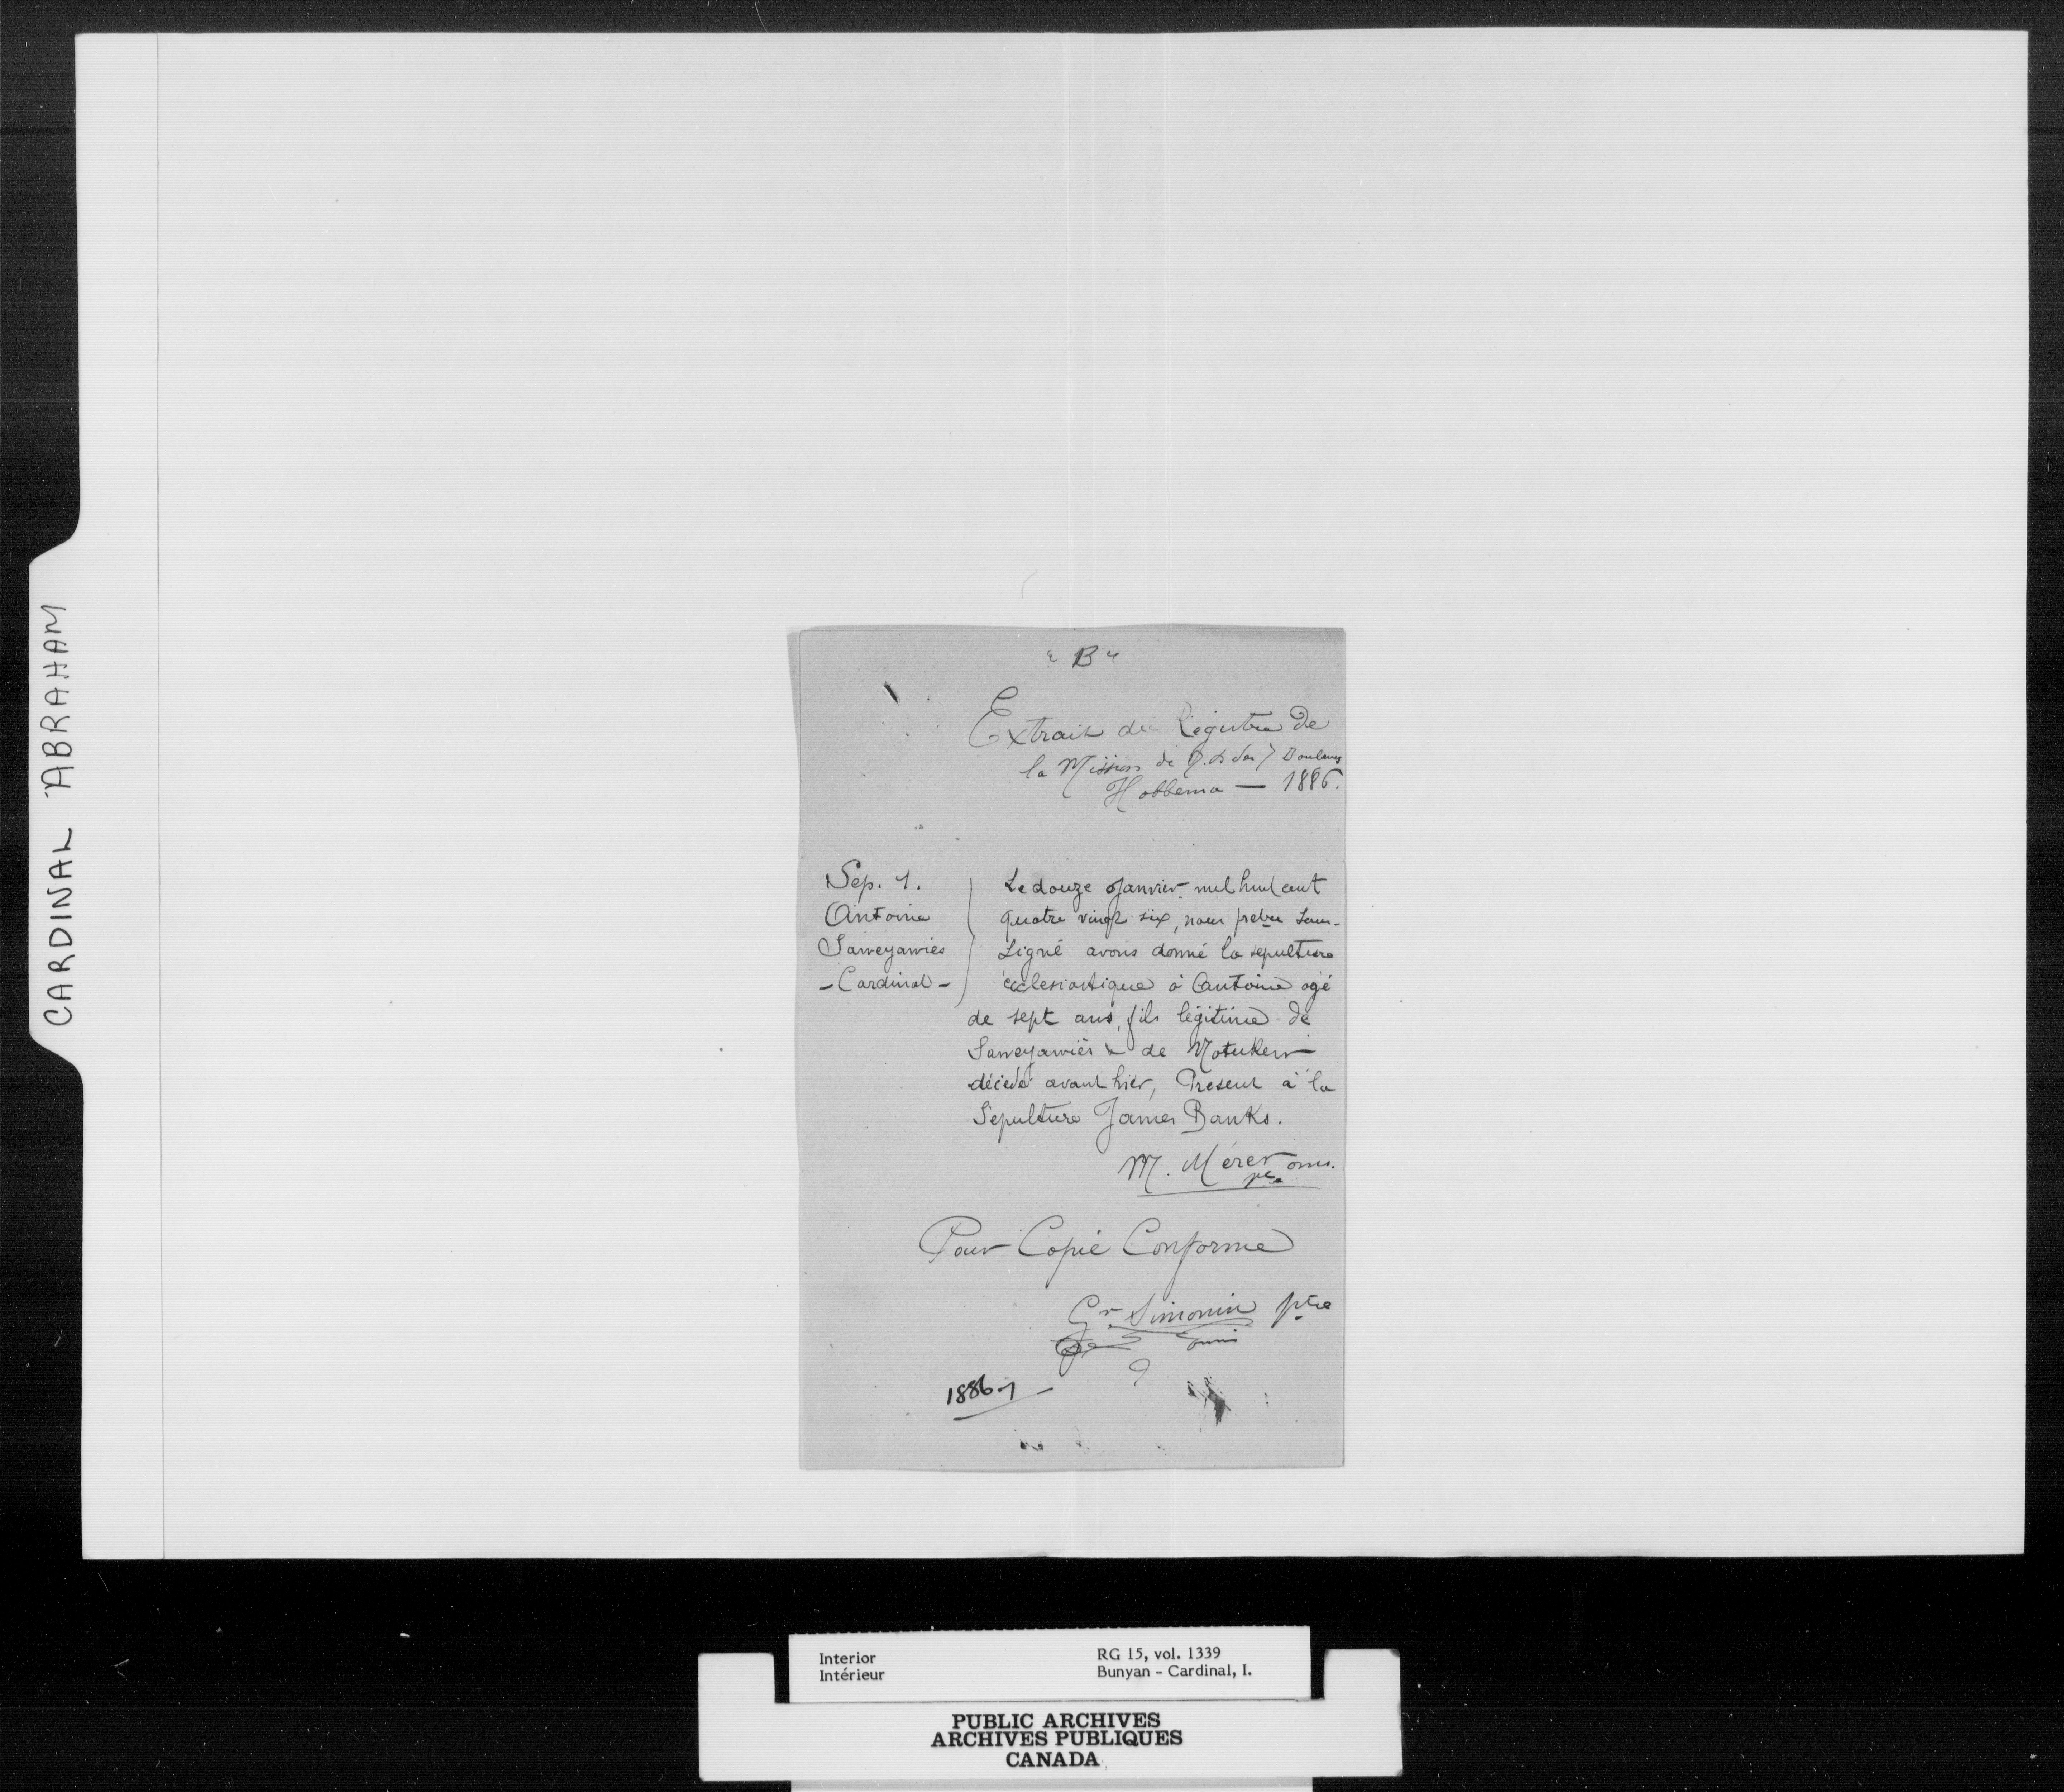 CARDINAL ABRAHAM
"B"
Extrait du Régistre de
la Mission de N. D. des 7 Douleurs
Hobbema — 1886.
Sep. 1.
Antoine
Saweyawies
- Cardinal -
Le douze Janvier mil huit cent
quatre vingt six, nous pretre sous-
signé avons donné la sepulture
écclesiastique à Antoine agé
de sept ans, fils légitime de
Saweyawies & de Notukew
décédé avant hier, Présent à la
Sépulture James Banks.
M. Mérer omi.
ptre
Pour Copie Conforme
Gr. Simonin ptre
omi
1886-1
Interior
Intérieur
RG 15, vol. 1339
Bunyan - Cardinal, I.
PUBLIC ARCHIVES
ARCHIVES PUBLIQUES
CANADA